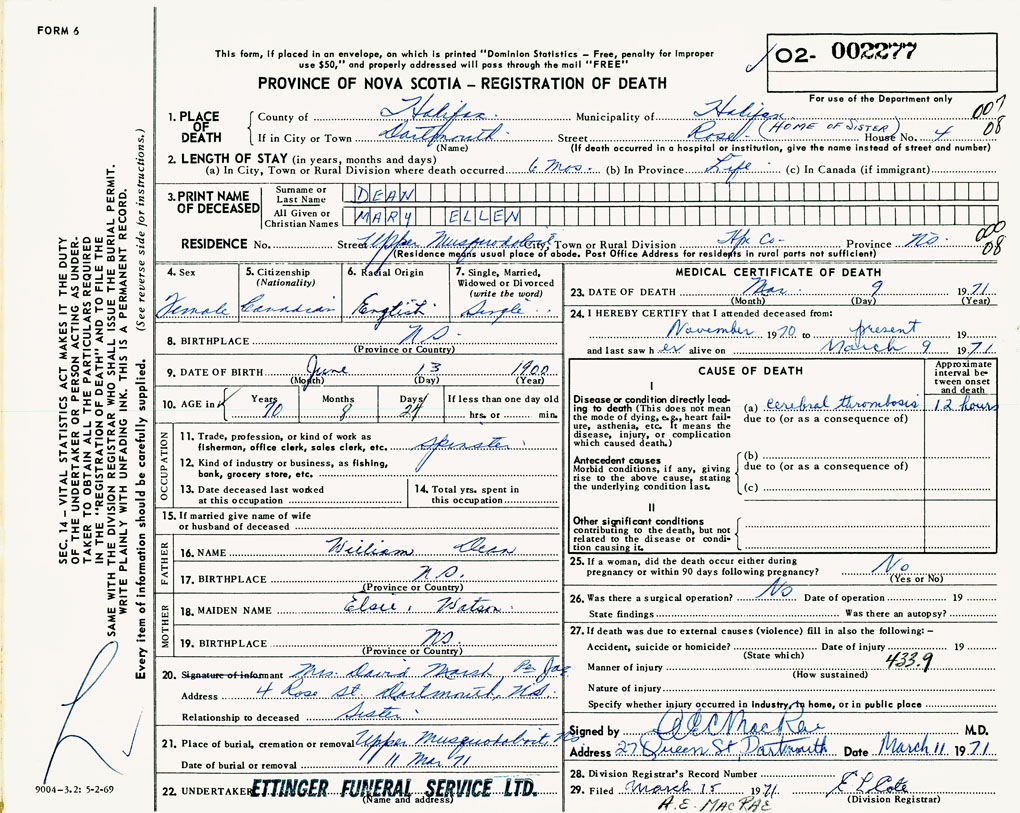 FORM 6
This form, if placed in an envelope, on which is printed "Dominion Statistics – Free, penalty for improper
use $50," and properly addressed will pass through the mail "FREE"
02- 002277
PROVINCE OF NOVA SCOTIA – REGISTRATION OF DEATH
For use of the Department only
007
08
1. PLACE OF DEATH
County of Halifax Municipality of Halifax
If in City or Town Dartmouth Street Rose (HOME OF SISTER) House No. 4
(Name) (If death occurred in a hospital or institution, give the name instead of street and number)
2. LENGTH OF STAY (in years, months and days)
(a) In City, Town or Rural Division where death occurred 6 mos. (b) In Province Life (c) In Canada (if immigrant)
3. PRINT NAME OF DECEASED
Surname or Last Name DEAN
All Given or Christian Names MARY ELLEN
000
08
RESIDENCE No. Street Upper Musquodoboit City, Town or Rural Division Hfx Co. Province NS.
(Residence means usual place of abode. Post Office Address for residents in rural parts not sufficient)
4. Sex
Female
5. Citizenship
(Nationality)
Canadian
6. Racial Origin
English
7. Single, Married,
Widowed or Divorced
(write the word)
Single
8. BIRTHPLACE N.S.
(Province or Country)
9. DATE OF BIRTH June 13 1900
(Month) (Day) (Year)
10. AGE in Years Months Days If less than one day old
70 8 24 hrs. or min.
OCCUPATION
11. Trade, profession, or kind of work as
fisherman, office clerk, sales clerk, etc. Spinster
12. Kind of industry or business, as fishing,
bank, grocery store, etc.
13. Date deceased last worked
at this occupation
14. Total yrs. spent in
this occupation
15. If married give name of wife
or husband of deceased
FATHER
16. NAME William Dean
17. BIRTHPLACE N.S.
(Province or Country)
MOTHER
18. MAIDEN NAME Elsie Watson
19. BIRTHPLACE NS.
(Province or Country)
20. Signature of informant Mrs. David Marsh Per
Address 4 Rose St Dartmouth, N.S.
Relationship to deceased Sister
21. Place of burial, cremation or removal Upper Musquodoboit NS
Date of burial or removal 11 Mar 71
22. UNDERTAKER ETTINGER FUNERAL SERVICE LTD.
(Name and address)
MEDICAL CERTIFICATE OF DEATH
23. DATE OF DEATH Mar. 9 1971
(Month) (Day) (Year)
24. I HEREBY CERTIFY that I attended deceased from:
November 1970 to present 19
and last saw her alive on March 9 1971
CAUSE OF DEATH
Approximate
interval be-
tween onset
and death
I
Disease or condition directly lead-
ing to death (This does not mean
the mode of dying, e.g., heart fail-
ure, asthenia, etc. It means the
disease, injury, or complication
which caused death.)
(a) cerebral thrombosis 12 hours
due to (or as a consequence of)
Antecedent causes
Morbid conditions, if any, giving
rise to the above cause, stating
the underlying condition last.
(b)
due to (or as a consequence of)
(c)
II
Other significant conditions
contributing to the death, but not
related to the disease or condi-
tion causing it.
25. If a woman, did the death occur either during
pregnancy or within 90 days following pregnancy? No
(Yes or No)
26. Was there a surgical operation? No Date of operation 19
State findings Was there an autopsy?
27. If death was due to external causes (violence) fill in also the following: –
Accident, suicide or homicide? Date of injury 19
(State which) 433.9
Manner of injury
(How sustained)
Nature of injury
Specify whether injury occurred in industry, in home, or in public place
Signed by A E MacRae M.D.
Address 27 Queen St Dartmouth Date March 11 1971
28. Division Registrar's Record Number
29. Filed March 15 1971
(Division Registrar)
A.E. MACRAE
SEC. 14 – VITAL STATISTICS ACT MAKES IT THE DUTY
OF THE UNDERTAKER OR PERSON ACTING AS UNDER-
TAKER TO OBTAIN ALL THE PARTICULARS REQUIRED
IN THE "REGISTRATION OF DEATH" AND TO FILE THE
SAME WITH THE DIVISION REGISTRAR WHO SHALL ISSUE THE BURIAL PERMIT.
WRITE PLAINLY WITH UNFADING INK. THIS IS A PERMANENT RECORD.
Every item of information should be carefully supplied. (See reverse side for instructions.)
9004-3.2: 5-2-69